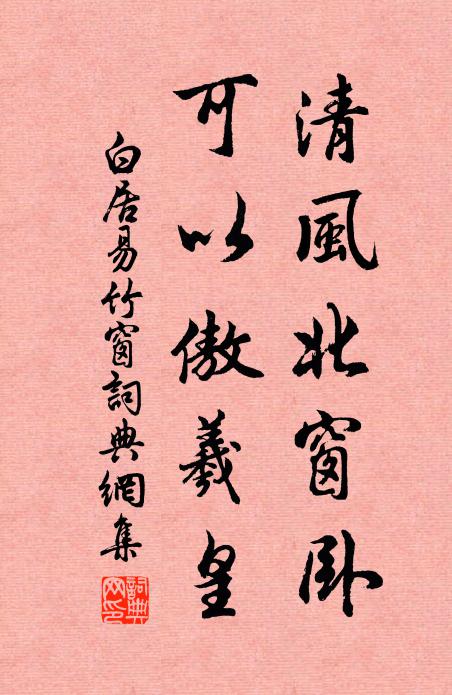 清風北窗卧
可以傲羲皇
白居易竹窗詞典網集
詞典網印